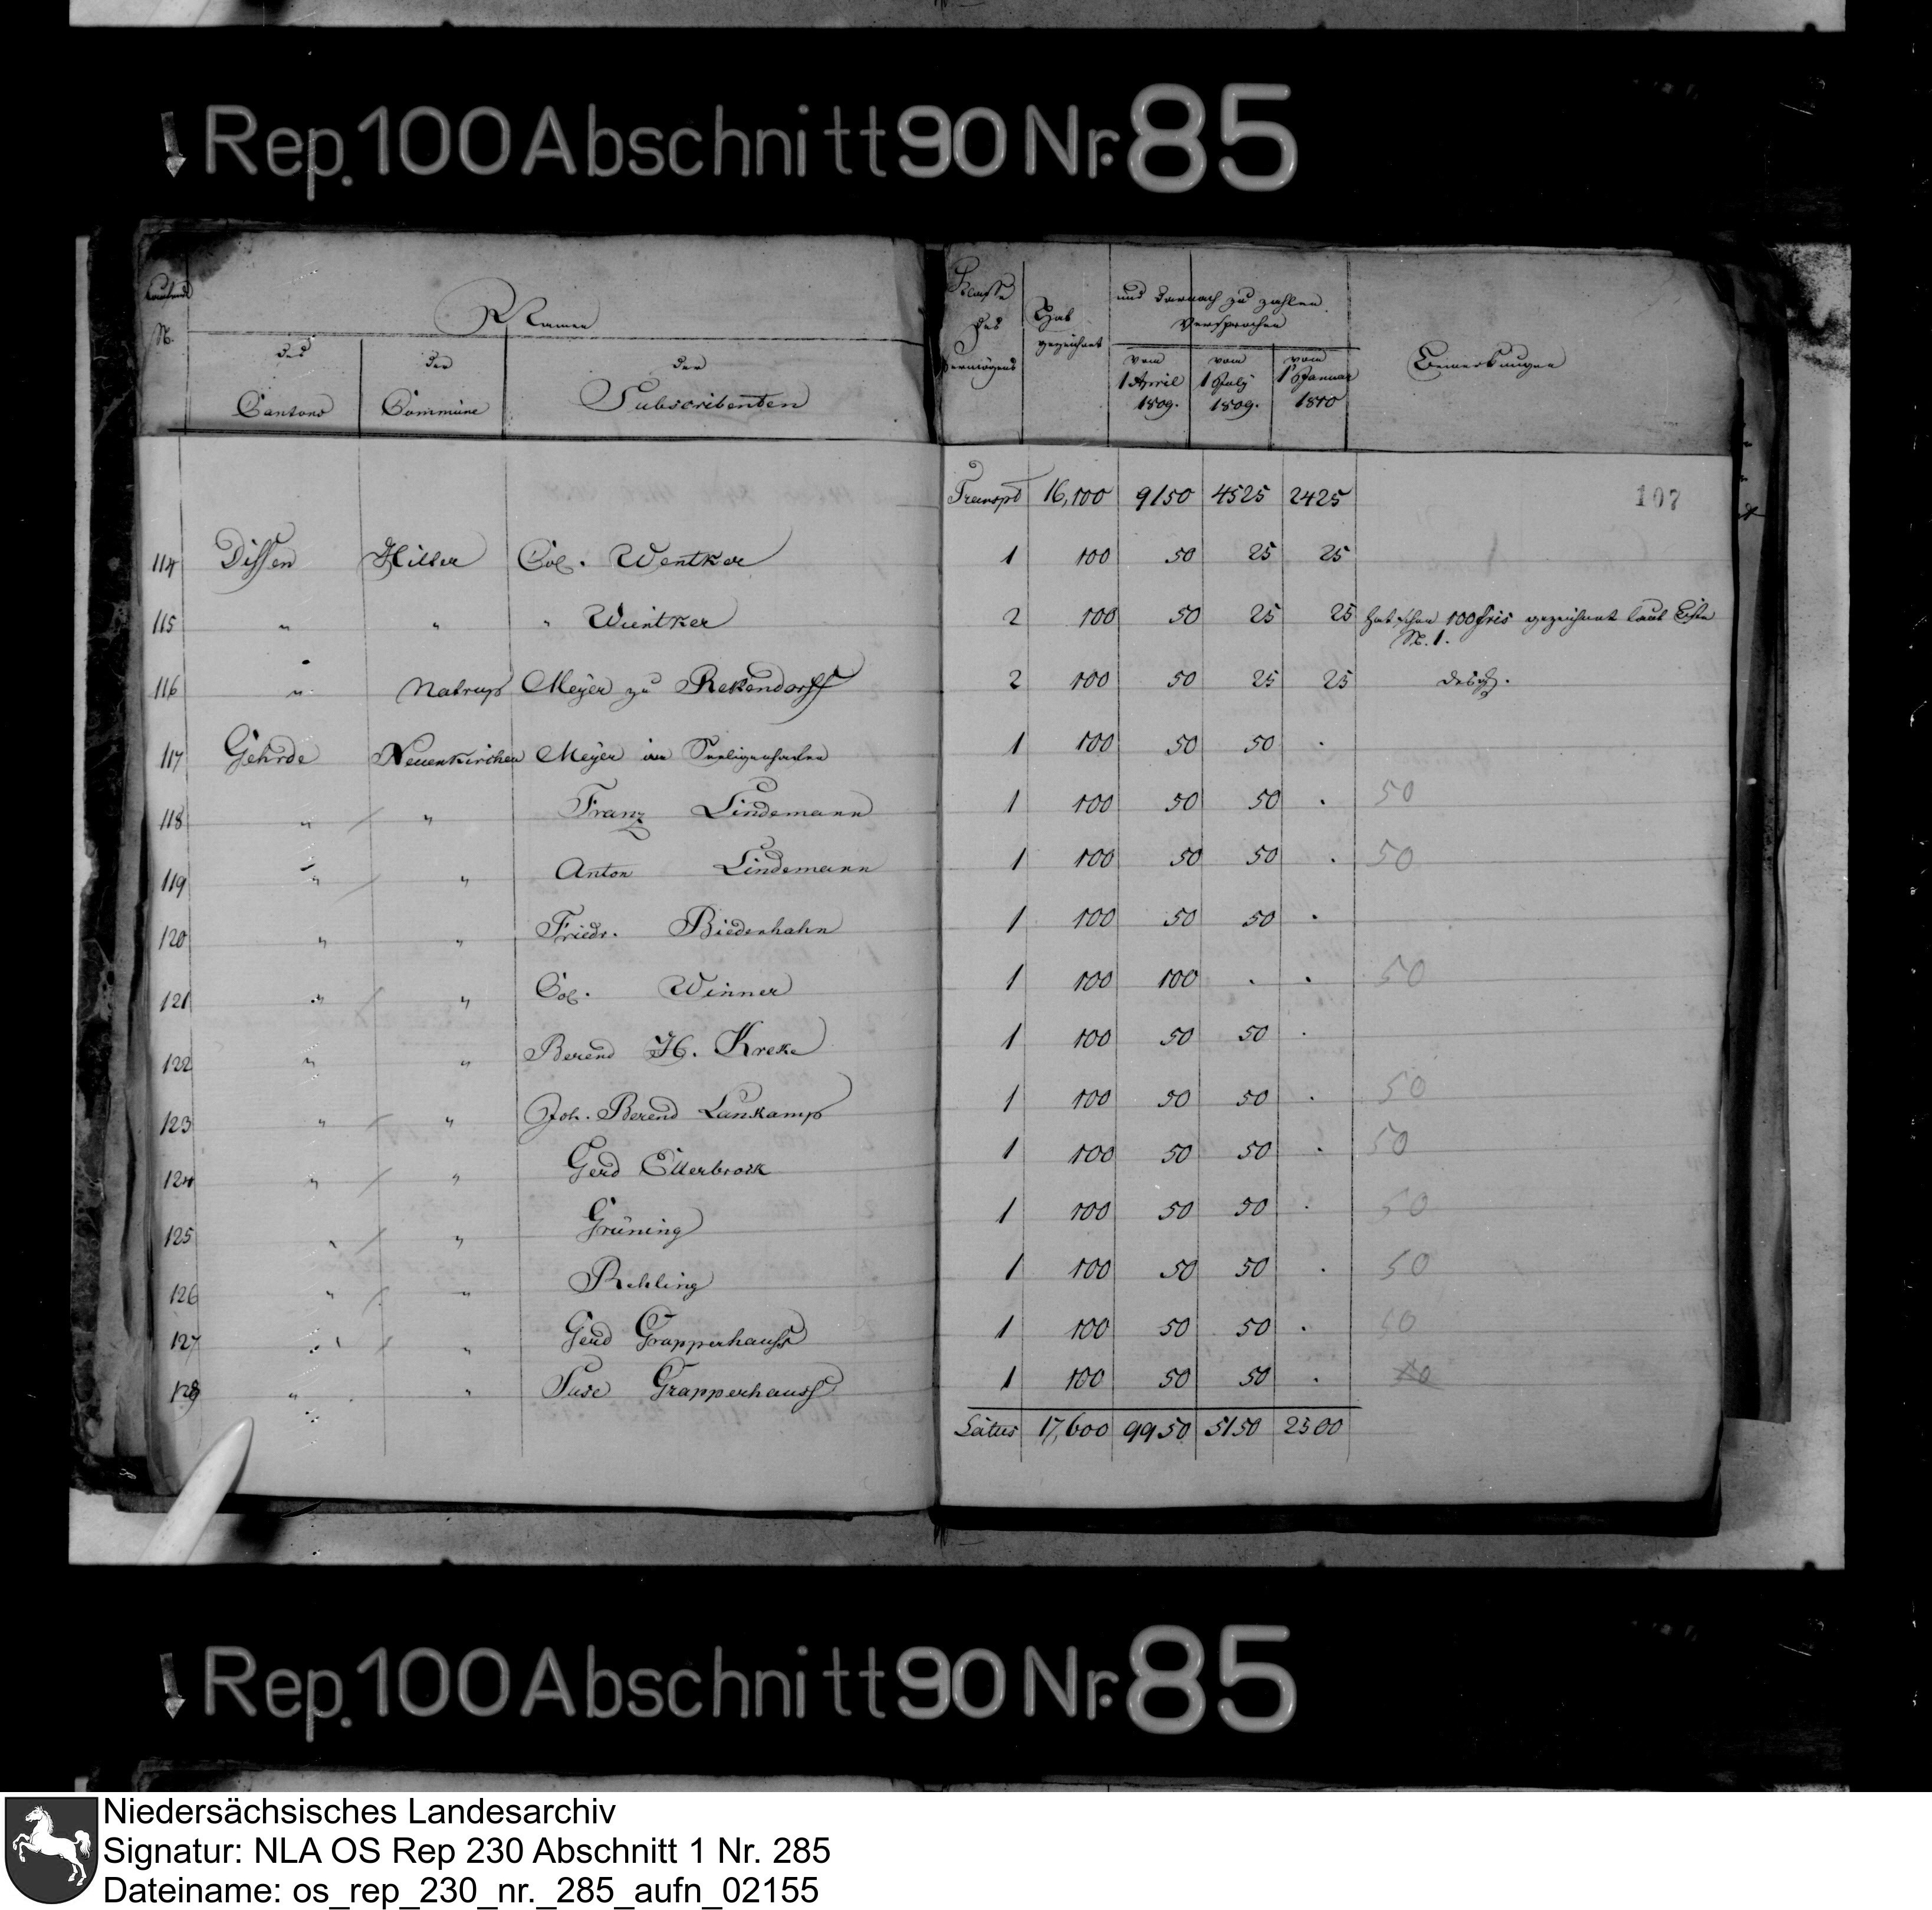 Rep. 100 Abschnitt 90 Nr. 85
Laufende N. Namen Klasse des Vermögens Hat gezeichnet und darnach zu zahlen versprochen Bemerkungen
des Cantons der Commüne der Subscribenten vom 1 April 1809. vom 1 July 1809. vom 1 Januar 1810
Transpt 16,100 9150 4525 2425 107
114 Dissen Hilter Col. Wentker 1 100 50 25 25
115 " " " Wientker 2 100 50 25 25 hat schon 100 frcs gezeichnet laut Liste
N. 1.
116 " Natrup Meyer zu Rekendorff 2 100 50 25 25 desgl.
117 Gehrde Neuenkirchen Meyer im 1 100 50 50 .
118 " / " Franz Lindemann 1 100 50 50 . 50
119 " / " Anton Lindemann 1 100 50 50 . 50
120 " " Friedr. Biedenhahn 1 100 50 50 .
121 " / " Col. Winner 1 100 100 . . 50
122 " " Berend H. Kreke 1 100 50 50 .
123 " / " Joh. Berend Lankamp 1 100 50 50 . 50
124 " / " Gerd Ellerbrock 1 100 50 50 . 50
125 " / " Grüning 1 100 50 50 . 50
126 " / " Rehling 1 100 50 50 . 50
127 " / " Gerd Grapperhauss 1 100 50 50 . 50
128 " " Grapperhauss 1 100 50 50 .
Latus 17,600 9950 5150 2500
Rep. 100 Abschnitt 90 Nr. 85
Niedersächsisches Landesarchiv
Signatur: NLA OS Rep 230 Abschnitt 1 Nr. 285
Dateiname: os_rep_230_nr._285_aufn_02155